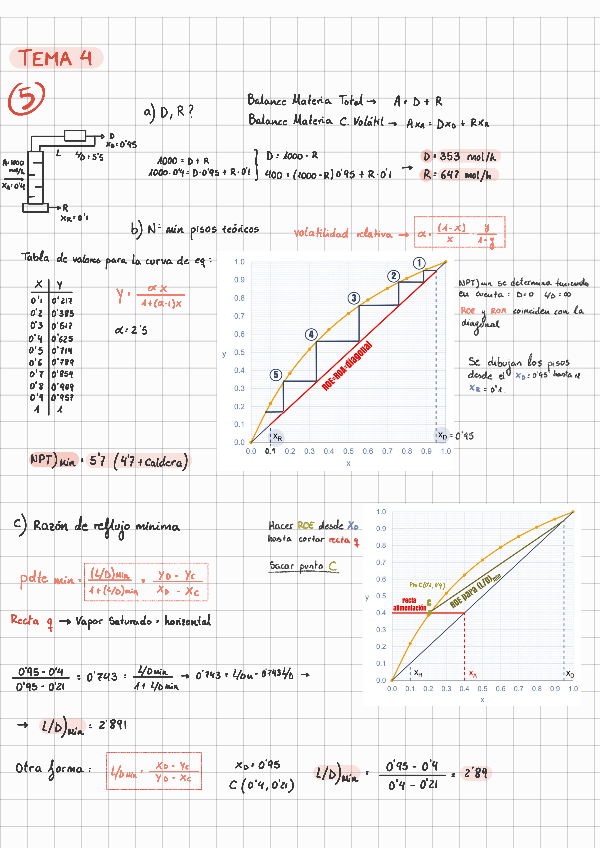 TEMA 4
5
a) D, R?
Balance Materia Total → A = D + R
Balance Materia C. Volátil → A xA = D xD + R xR
D
xD = 0'95
L
L/D = 5'5
A = 1000 mol/h
xA = 0'4
R
xR = 0'1
1000 = D + R
1000·0'4 = D·0'95 + R·0'1
D = 1000 - R
400 = (1000-R) 0'95 + R·0'1
→ D = 353 mol/h
R = 647 mol/h
b) N = min pisos teóricos
volatilidad relativa → α = (1-x)/x · y/(1-y)
Tabla de valores para la curva de eq:
X Y
0'1 0'217
0'2 0'385
0'3 0'517
0'4 0'625
0'5 0'714
0'6 0'789
0'7 0'854
0'8 0'909
0'9 0'957
1 1
Y = αx / 1+(α-1)x
α = 2'5
1.0
0.9
0.8
0.7
0.6
0.5
0.4
0.3
0.2
0.1
0.0
y
1
2
3
4
5
ROE=ROA=diagonal
xR
xD = 0'95
0.0 0.1 0.2 0.3 0.4 0.5 0.6 0.7 0.8 0.9 1.0
x
NPT)min se determina teniendo
en cuenta: D=0 L/D=∞
ROE y ROA coinciden con la
diagonal
Se dibujan los pisos
desde el xD=0'95 hasta el
xR = 0'1
NPT)min = 5'7 (4'7 + Caldera)
c) Razón de reflujo mínima
Hacer ROE desde XD
hasta cortar recta q
Sacar punto C
pdte min = (L/D)min / 1+(L/D)min = YD - YC / XD - XC
Recta q → Vapor Saturado = horizontal
0'95 - 0'4 / 0'95 - 0'21 = 0'743 = L/Dmin / 1 + L/Dmin → 0'743 = L/DM - 0'743 L/D →
→ L/D)min = 2'891
Otra forma: L/Dmin = XD - YC / YC - XC
XD = 0'95
C (0'4, 0'21)
L/D)min = 0'95 - 0'4 / 0'4 - 0'21 = 2'89
1.0
0.9
0.8
0.7
0.6
0.5
0.4
0.3
0.2
0.1
0.0
y
recta
alimentación
C
ROE para (L/D)min
xA
xD
0.0 0.1 0.2 0.3 0.4 0.5 0.6 0.7 0.8 0.9 1.0
x